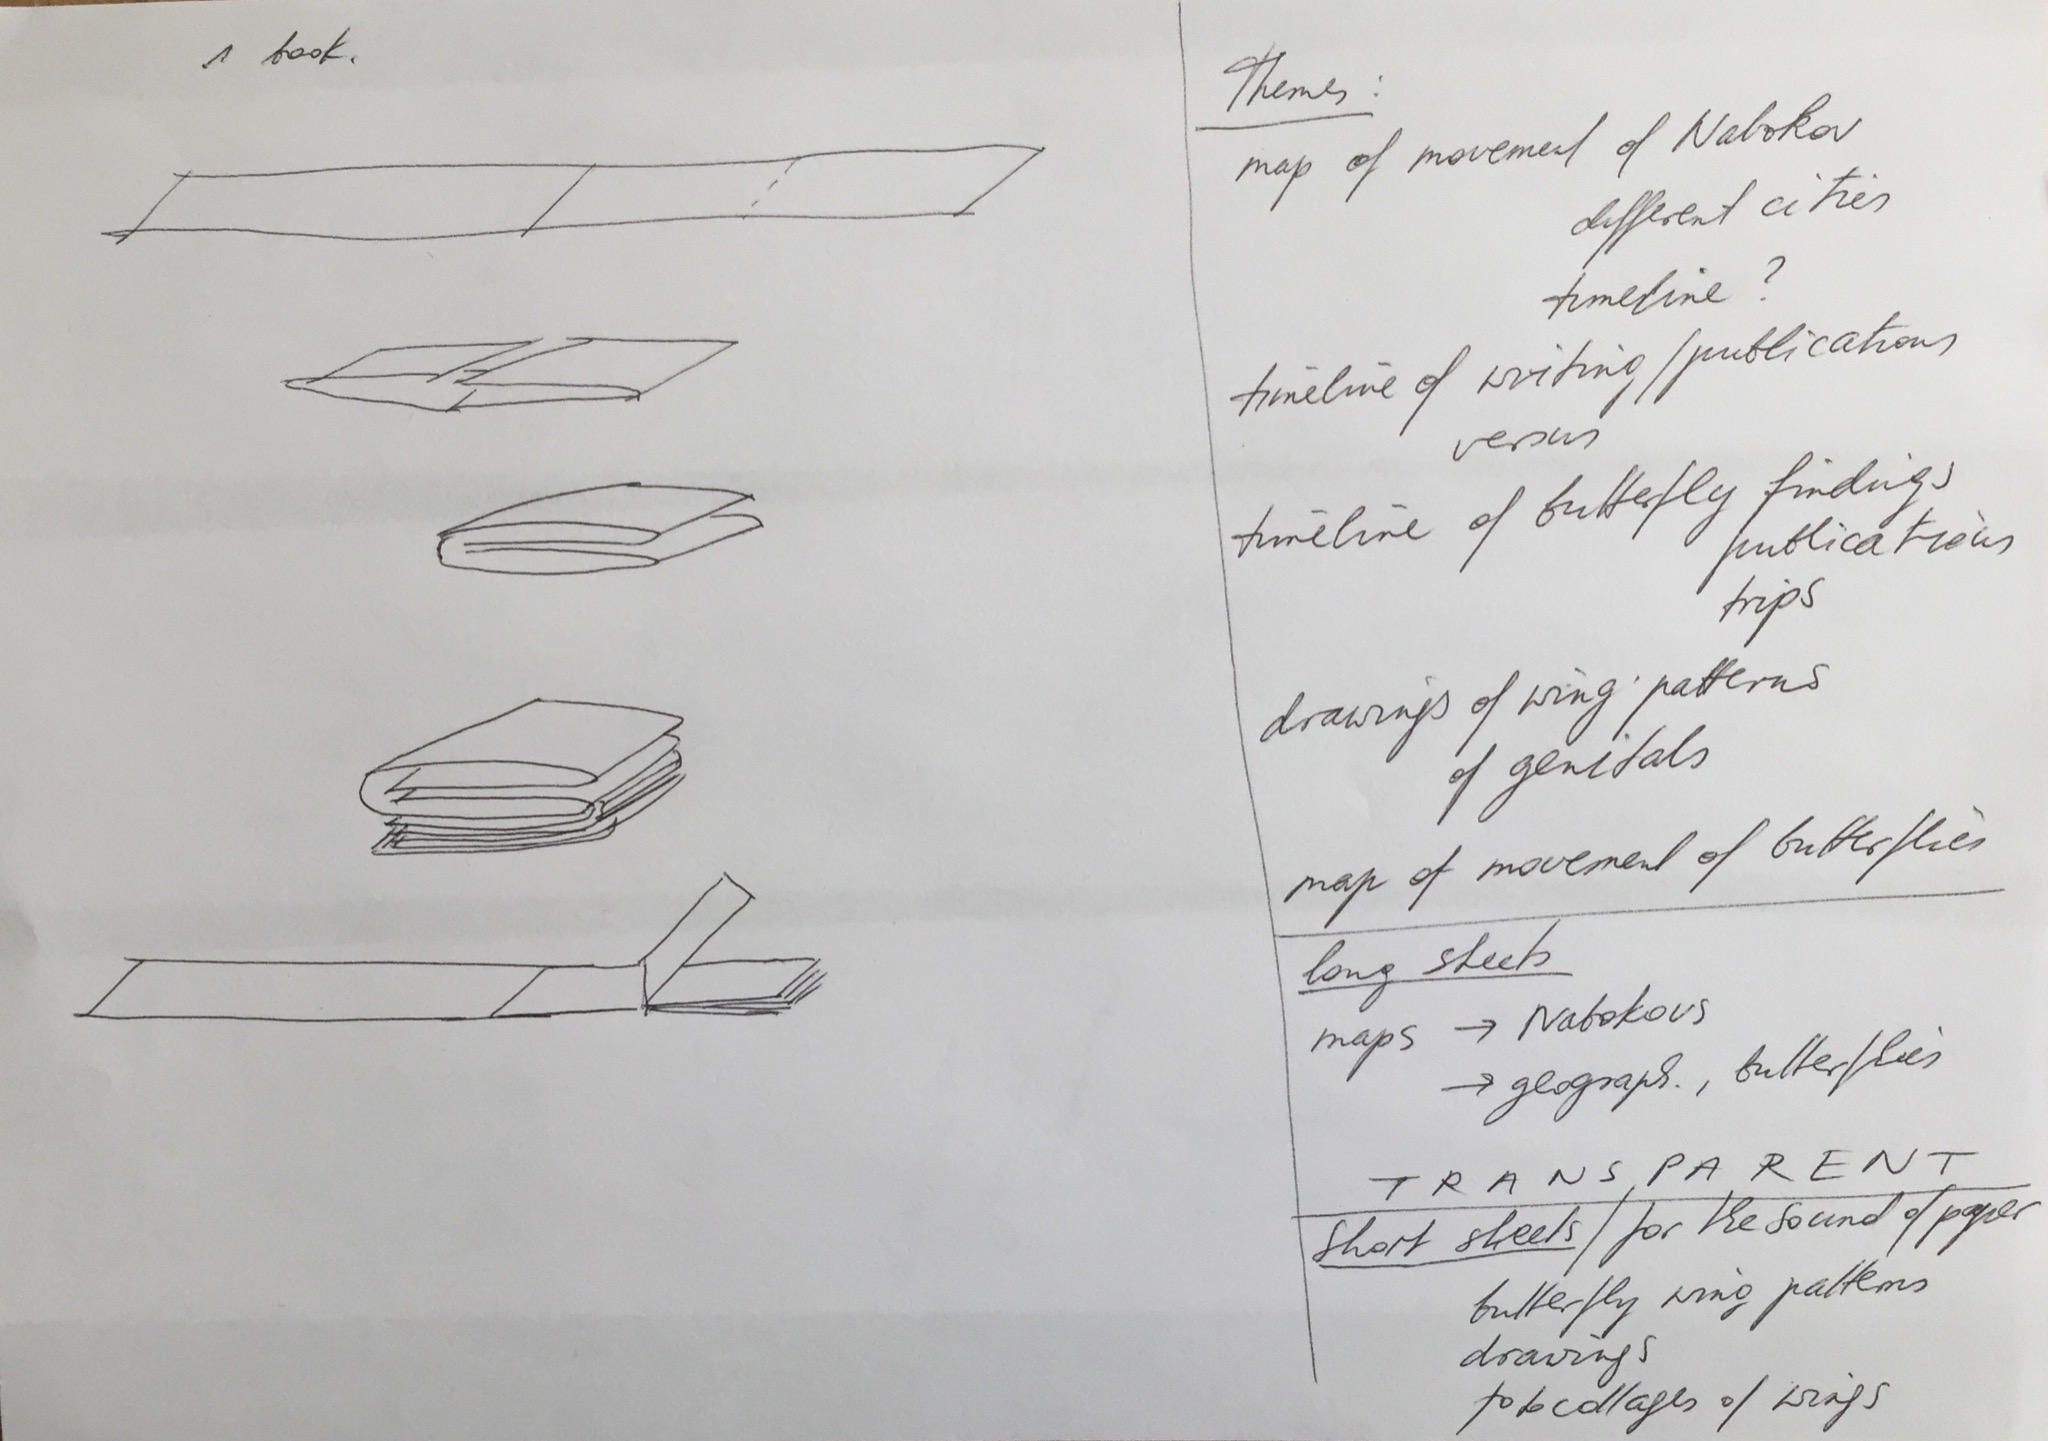 1 book.
Themes:
map of movement of Nabokov
different cities
timeline?
timeline of writing/publications
versus
timeline of butterfly findings
publications
trips
drawings of wing patterns
of genitals
map of movement of butterflies
long sheets
maps → Nabokovs
→ geograph., butterflies
TRANSPARENT
short sheets/for the sound of paper
butterfly wing patterns
drawings
fotocollages of wings